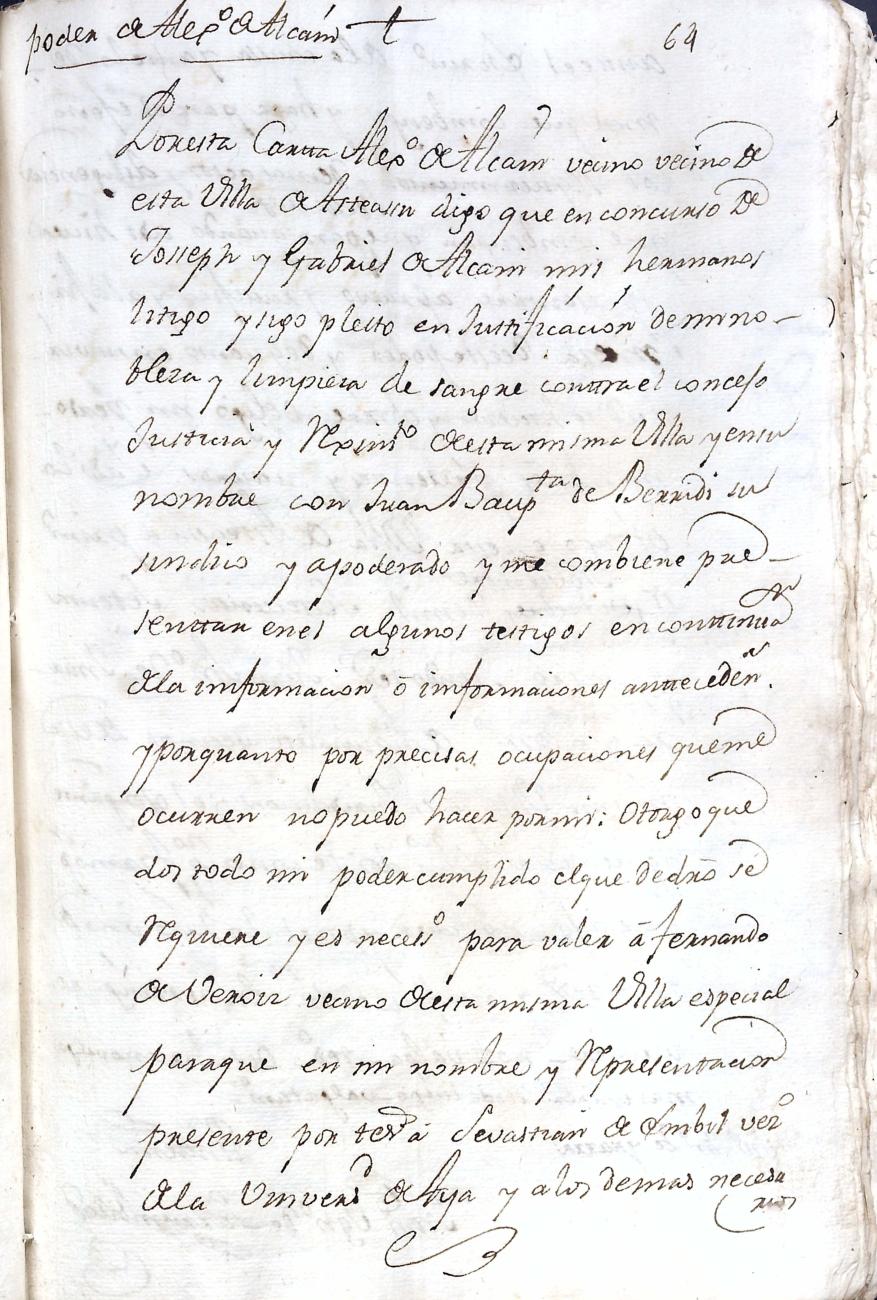 poder de Alexo de Alcain † 64
Por esta Cartta Alexo de Alcain vecino vecino de
esta Villa de Asteasu digo que en concurso de
Joseph y Gabriel de Alcain mis hermanos
litigo y sigo pleito en Justificación de mi no-
bleza y limpieza de sangre conttra el concejo
Justicia y Reximto de esta misma Villa y en su
nombre con Juan Baupta de Berridi su
sindico y apoderado y me combiene pre-
senttar en el algunos testigos en conttinuaon
de la imformacion o imformaciones anttecedens.
y por quanto por precisas ocupaciones que me
ocurren no puedo hacer por mi: Otorgo que
doi todo mi poder cumplido el que de dro se
Requiere y es necesso para valer á fernando
de Veroiz vecino de esta misma Villa especial
para que en mi nombre y Representacion
presente por tesgo á Sevastian de Embil vezo
de la Universd de Aya y a los demas necesa
rios